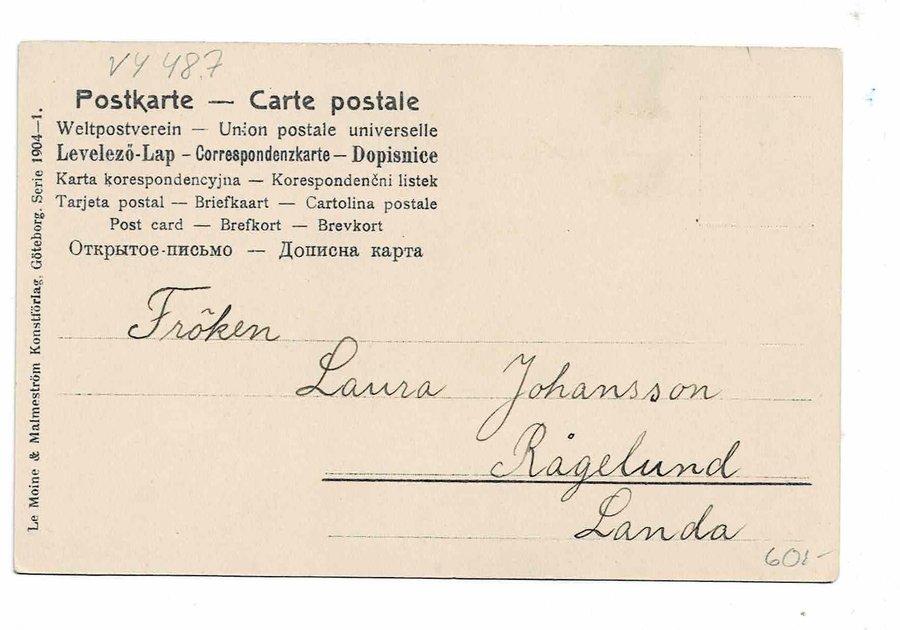 VY 487
Postkarte — Carte postale
Weltpostverein — Union postale universelle
Levelező-Lap – Correspondenzkarte – Dopisnice
Karta korespondencyjna — Korespondenčni listek
Tarjeta postal — Briefkaart — Cartolina postale
Post card — Brefkort — Brevkort
Открытое-письмо — Дописна карта
Le Moine & Malmeström Konstförlag, Göteborg. Serie 1904—1.
Fröken
Laura Johansson
Rågelund
Landa
60:-